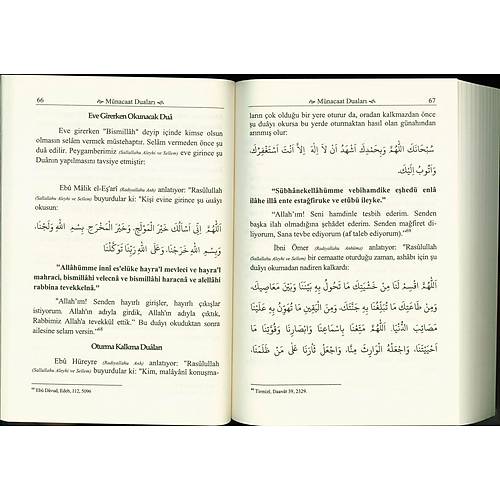 66 Münacaat Duaları
Eve Girerken Okunacak Duâ
Eve girerken "Bismillâh" deyip içinde kimse olsun
olmasın selam vermek müstehaptır. Selâm vermeden önce şu
duâ edilir. Peygamberimiz (Sallallahu Aleyhi ve Sellem) eve girince şu
Duânın yapılmasını tavsiye etmiştir:
Ebû Mâlik el-Eş'arî (Radıyallahu Anh) anlatıyor: "Rasûlullah
(Sallallahu Aleyhi ve Sellem) buyurdular ki: "Kişi evine girince şu duâyı
okusun:
اَللّٰهُمَّ اِنِّى اَسْاَلُكَ خَيْرَ الْمَوْلَجِ، وَخَيْرَ الْمَخْرَجِ بِسْمِ اللّٰهِ وَلَجْنَا،
بِسْمِ اللّٰهِ خَرَجْنَا، وَعَلَى اللّٰهِ رَبِّنَا تَوَكَّلْنَا
"Allâhümme innî es'elüke hayra'l mevleci ve hayra'l
mahraci, bismillâhi velecnâ ve bismillâhi haracnâ ve alellâhi
rabbina tevekkelnâ."
"Allah'ım! Senden hayırlı girişler, hayırlı çıkışlar
istiyorum. Allah'ın adıyla girdik, Allah'ın adıyla çıktık,
Rabbimiz Allah'a tevekkül ettik." Bu duâyı okuduktan sonra
ailesine selam versin."
Oturma Kalkma Duâları
Ebû Hüreyre (Radıyallahu Anh) anlatıyor: "Rasûlullah
(Sallallahu Aleyhi ve Sellem) buyurdular ki: "Kim, malâyânî konuşma-
Ebû Dâvud, Edeb, 112, 5096
Münacaat Duaları 67
ların çok olduğu bir yere oturur da, oradan kalkmazdan önce
şu duâyı okursa bu yerde oturmaktan hasıl olan günahından
arınmış olur:
سُبْحَانَكَ اللّٰهُمَّ وَبِحَمْدِكَ اَشْهَدُ اَنْ لاَ اِلٰهَ اِلاَّ اَنْتَ اَسْتَغْفِرُكَ
وَاَتُوبُ اِلَيْكَ.
"Sübhânekellâhümme vebihamdike eşhedü enlâ
ilâhe illâ ente estağfiruke ve etûbü ileyke."
"Allah'ım! Seni hamdinle tesbih ederim. Senden
başka ilah olmadığına şehâdet ederim. Senden mağfiret di-
liyorum, Sana tevbe ediyorum (af taleb ediyorum)."
İbni Ömer (Radıyallahu Anhüma) anlatıyor: "Rasûlullah
(Sallallahu Aleyhi ve Sellem) bir cemaatte oturduğu zaman, ashâbı için şu
duâyı okumadan nadiren kalkardı:
اَللّٰهُمَّ اقْسِمْ لَنَا مِنْ خَشْيَتِكَ مَا تَحُولُ بِهِ بَيْنَنَا وَبَيْنَ مَعَاصِيكَ،
وَمِنْ طَاعَتِكَ مَا تُبَلِّغُنَا بِهِ جَنَّتَكَ، وَمِنَ الْيَقِينِ مَا تُهَوِّنُ بِهِ عَلَيْنَا
مَصَائِبَ الدُّنْيَا. اَللّٰهُمَّ مَتِّعْنَا بِاَسْمَاعِنَا وَاَبْصَارِنَا وَقُوَّتِنَا مَا
اَحْيَيْتَنَا، وَاجْعَلْهُ الْوَارِثَ مِنَّا، وَاجْعَلْ ثَأْرَنَا عَلَى مَنْ ظَلَمَنَا،
Tirmizî, Daavât 39, 2329.